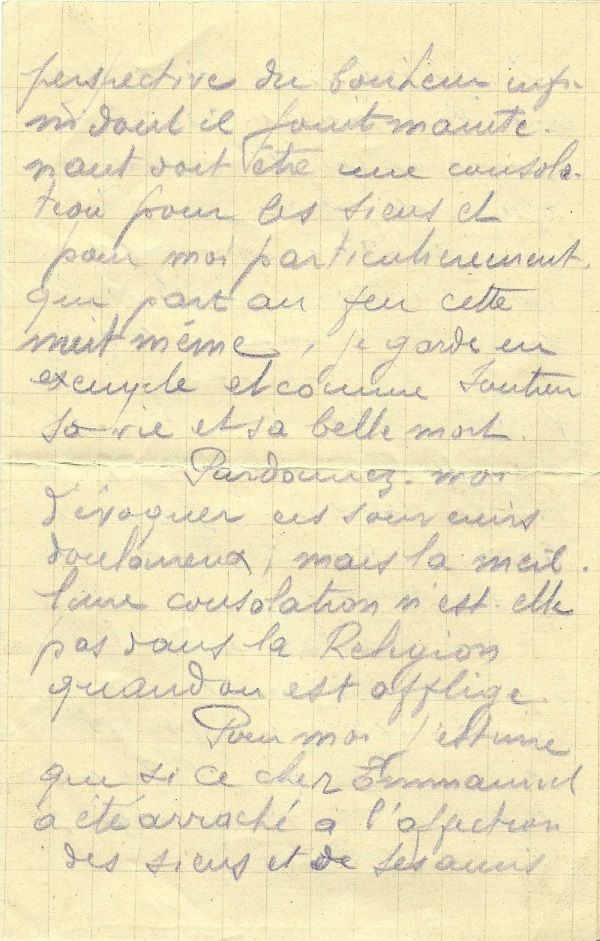 perspective du bonheur infi-
ni dont il jouit mainte-
nant doit être une consola-
tion pour les siens et
pour moi particulièrement,
qui part au feu cette
nuit même, je garde en
exemple et comme soutien
sa vie et sa belle mort.
Pardonnez-moi
d'évoquer ces souvenirs
douloureux, mais la meil-
leure consolation n'est-elle
pas dans la Religion
quand on est affligé.
Pour moi j'estime
que si ce cher Emmanuel
a été arraché à l'affection
des siens et de ses amis